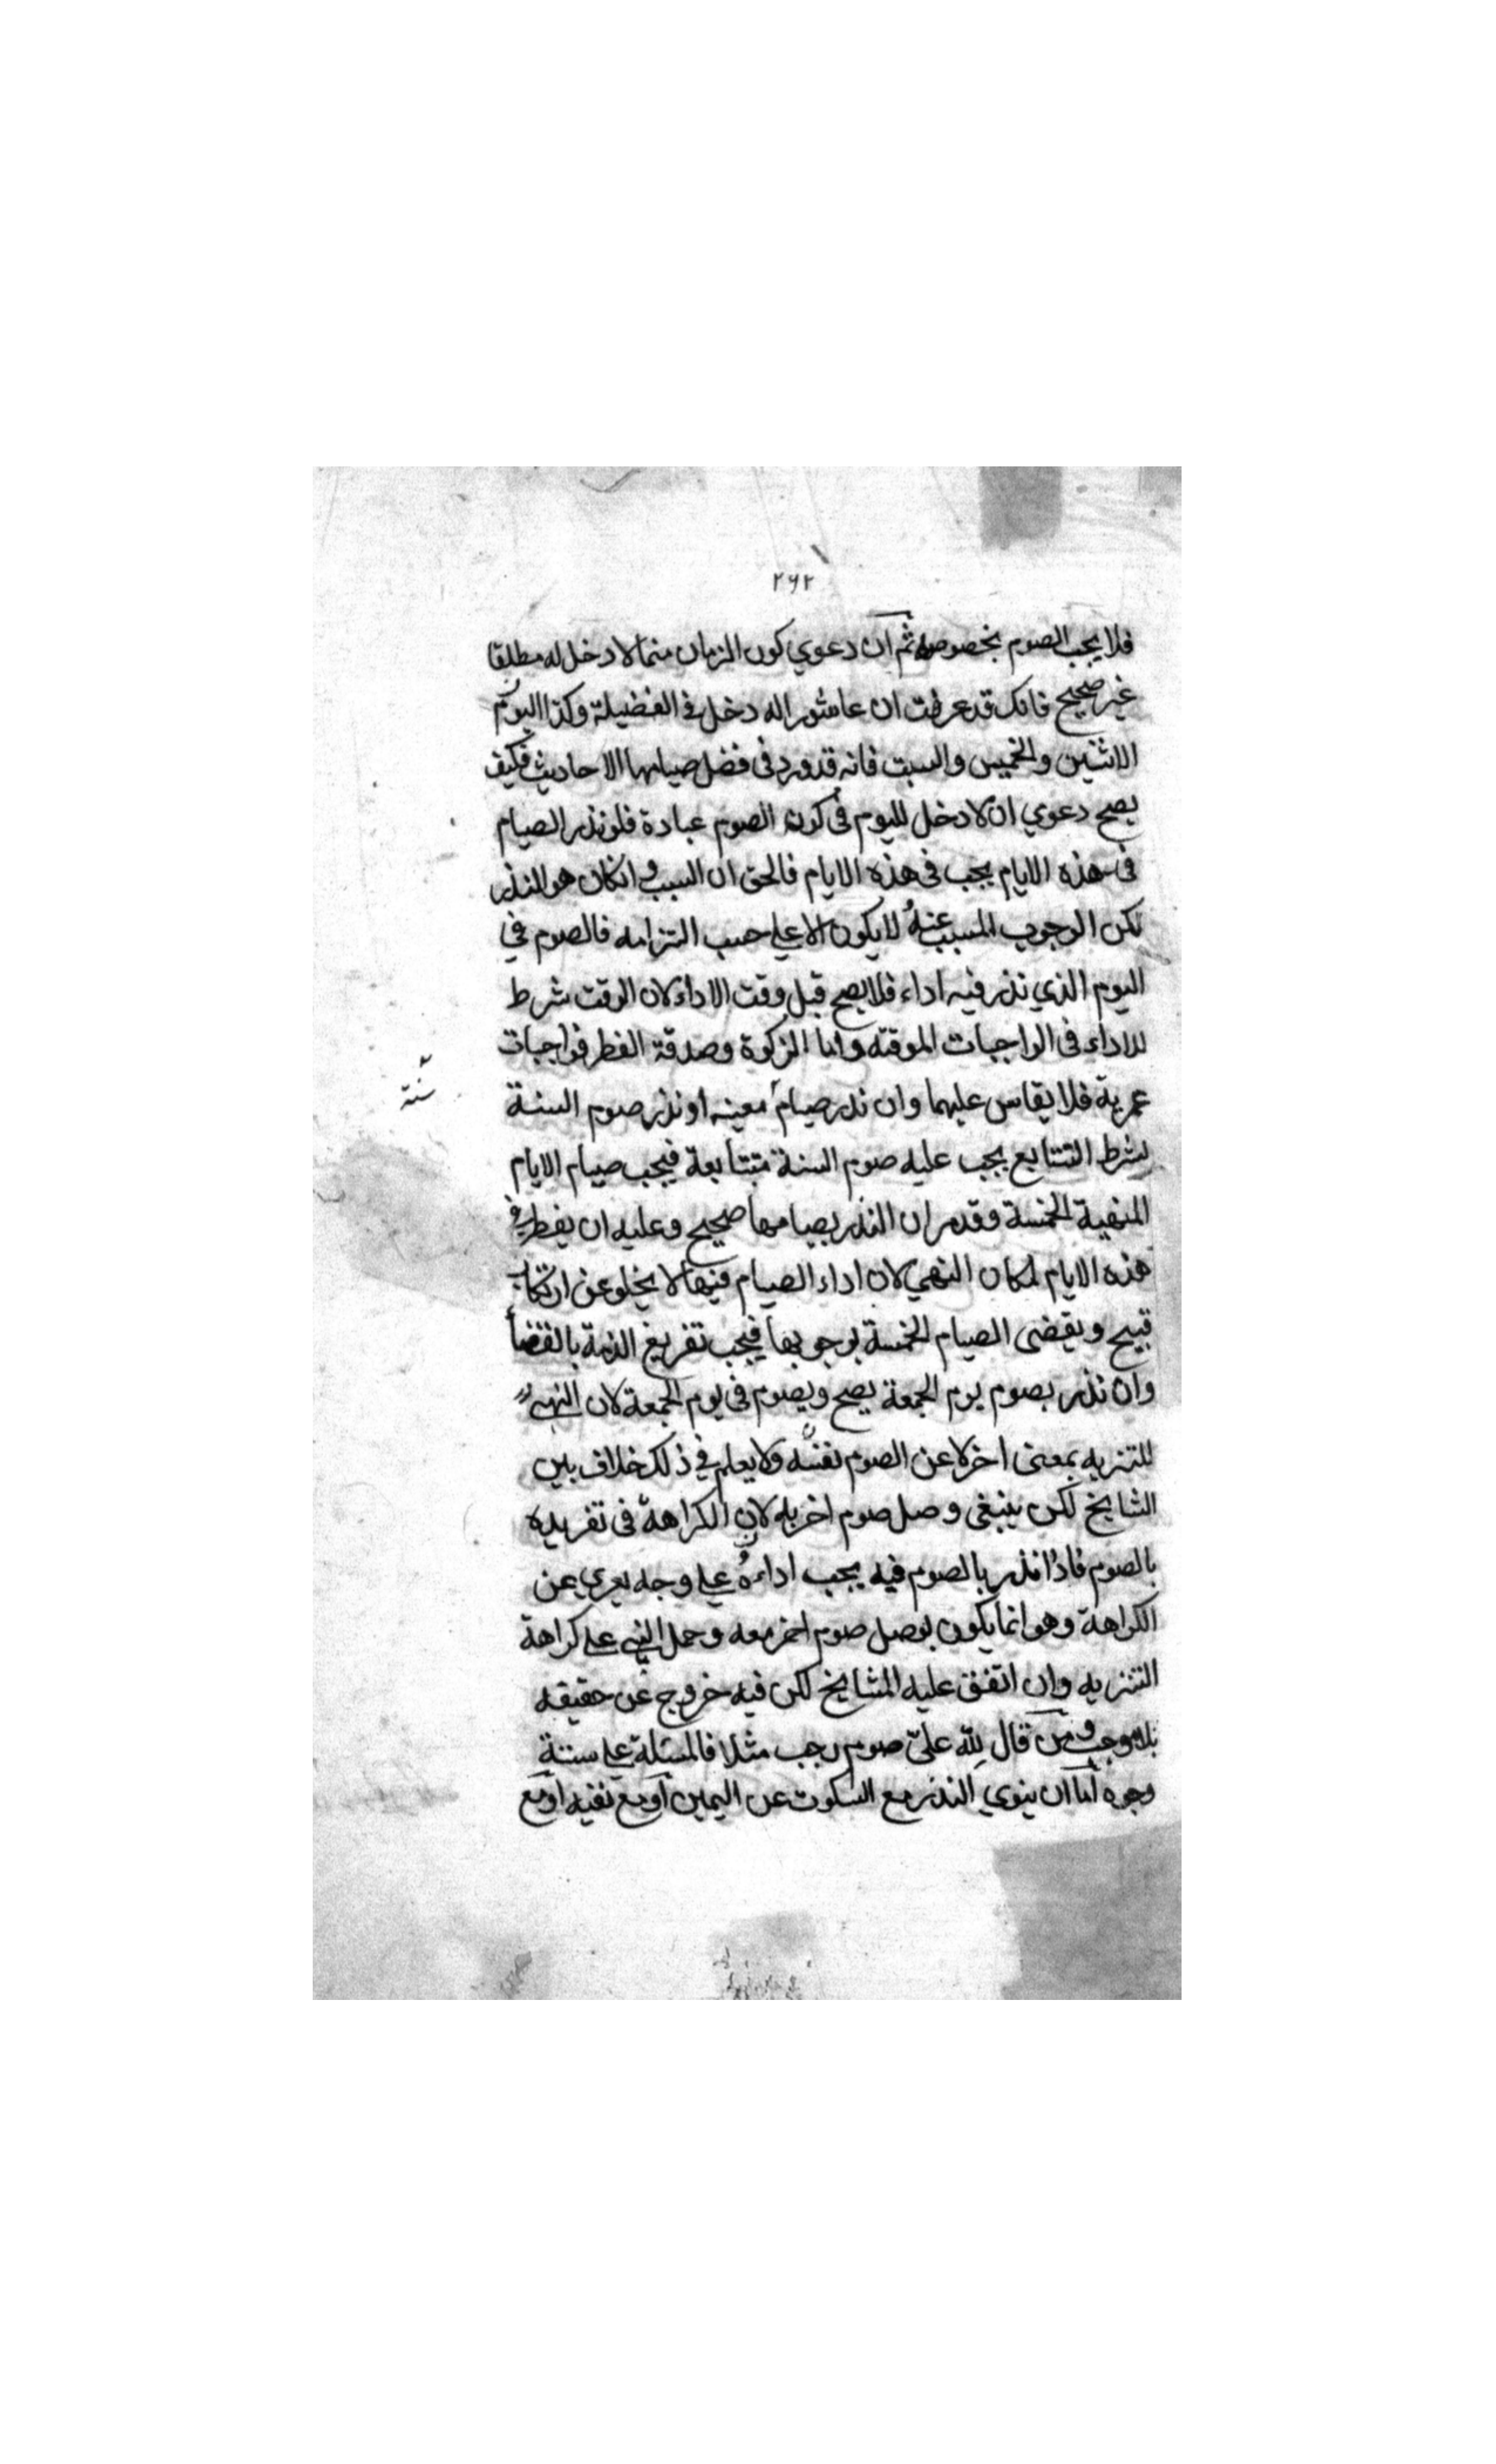 ٢٦٢
فلا يجب الصوم بخصوصه ثم ان دعوي كون الزمان منما لا دخل له مطلقا
غير صحيح فانك قد عرفت ان عاشورا له دخل في الفضيلة وكذا اليوم
الاثنين والخميس والسبت فانه قد ورد في فضل صيامها الاحاديث فكيف
يصح دعوي ان لا دخل لليوم في كون الصوم عبادة فلو نذر الصيام
في هذه الايام يجب في هذه الايام فالحق ان السبب وانكان هو النذر
لكن الوجوب المسبب عنه لا يكون الا علي حسب التزامه فالصوم في
اليوم الذي نذر فيه اداء فلا يصح قبل وقت الاداء لان الوقت شرط
للاداء في الواجبات الموقته واما الزكوة وصدقة الفطر فواجبات
عمرية فلا يقاس عليهما وان نذر صيام معينه او نذر صوم السنة
سنة
بشرط التتابع يجب عليه صوم السنة متتابعة فيجب صيام الايام
المنهية الخمسة وقد مر ان النذر بصيامها صحيح وعليه ان يفطر في
هذه الايام لمكان النهي لان اداء الصيام فيها لا يخلو عن ارتكاب
قبيح ويقضى الصيام الخمسة لوجوبها فيجب تفريغ الذمة بالقضأ
وان نذر بصوم يوم الجمعة يصح ويصوم في يوم الجمعة لان النهي
للتنزيه بمعنى اخر لا عن الصوم نفسه ولا يعلم في ذلك خلاف بين
المشايخ لكن ينبغي وصل صوم اخر به لان الكراهة في تفريده
بالصوم فاذا نذر بالصوم فيه يجب اداءه علي وجه يعري عن
الكراهة وهو انما يكون بوصل صوم اخر معه وحمل النهي علي كراهة
التنزيه وان اتفق عليه المشايخ لكن فيه خروج عن حقيقه
بلا موجب ومن قال لله عليّ صوم رجب مثلا فالمسئلة علي ستة
وجوه اما ان ينوي النذر مع السكوت عن اليمين او مع نفيه او مع